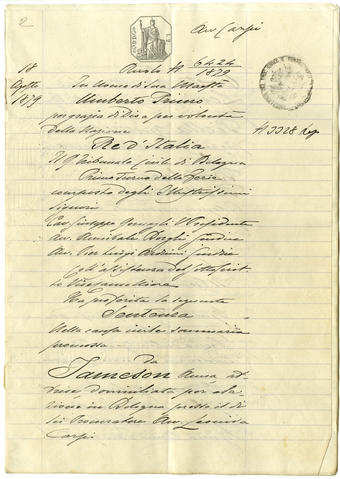 2
Avv Carpi
18
Agosto
1879
Ruolo N 6424
1879
In Nome di Sua Maestà
Umberto Primo
per grazia di Dio e per volontà
Della Nazione
N 3328 Rep
Re d'Italia
Il Tribunale Civile di Bologna
Primo Turno delle Ferie
composto degli Illustrissimi
Signori
Cav Giuseppe Vice Presidente
Avv Annibale Borghi Giudice
Avv Pier Luigi Giudice
Coll'assistenza del
Vice
Ha proferito la seguente
Sentenza
Nella causa civile sommaria
promossa
Da
Jameson Anna
domiciliata per ela
zione in Bologna presso il di
lei Procuratore Avv Leonida
Carpi